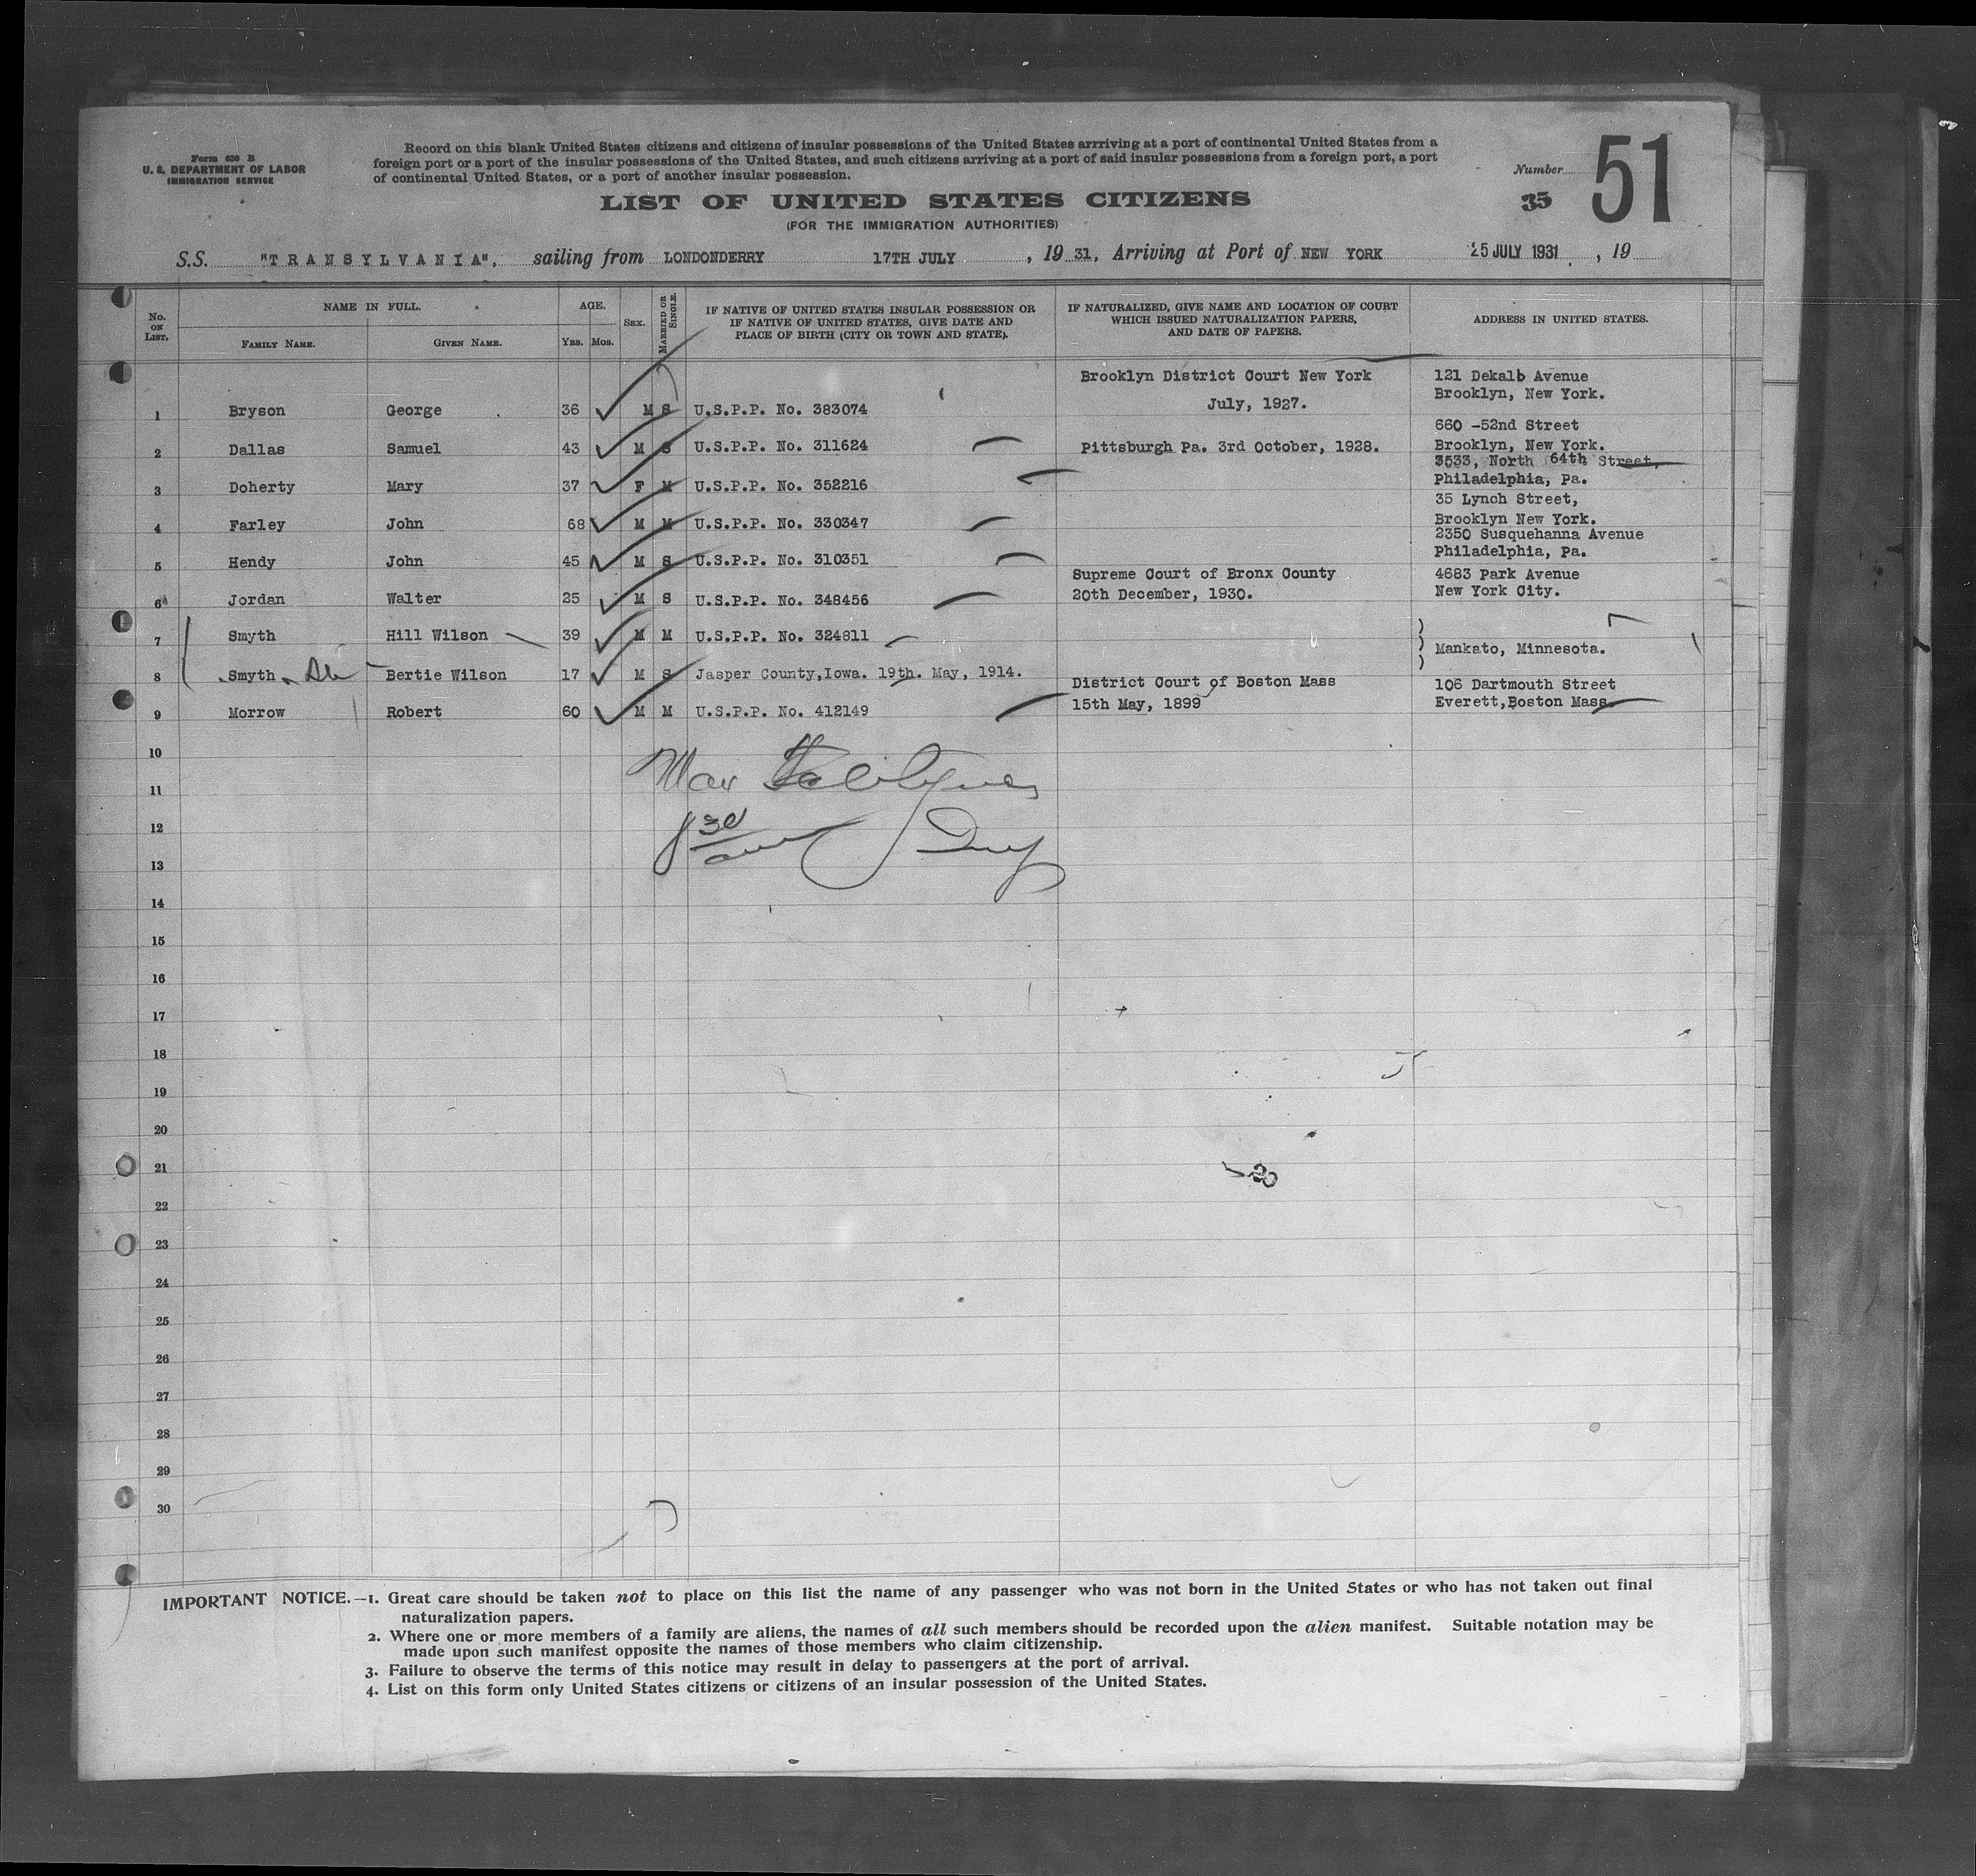 Form 630 B
U. S. DEPARTMENT OF LABOR
IMMIGRATION SERVICE
Record on this blank United States citizens and citizens of insular possessions of the United States arrriving at a port of continental United States from a
foreign port or a port of the insular possessions of the United States, and such citizens arriving at a port of said insular possessions from a foreign port, a port
of continental United States, or a port of another insular possession.
Number 51
35
LIST OF UNITED STATES CITIZENS
(FOR THE IMMIGRATION AUTHORITIES)
S.S. "TRANSYLVANIA", sailing from LONDONDERRY 17TH JULY , 19 31, Arriving at Port of NEW YORK 25 JULY 1931 , 19
No. ON LIST. NAME IN FULL. FAMILY NAME. GIVEN NAME. AGE. YRS. MOS. SEX. MARRIED OR SINGLE. IF NATIVE OF UNITED STATES INSULAR POSSESSION OR IF NATIVE OF UNITED STATES, GIVE DATE AND PLACE OF BIRTH (CITY OR TOWN AND STATE). IF NATURALIZED, GIVE NAME AND LOCATION OF COURT WHICH ISSUED NATURALIZATION PAPERS, AND DATE OF PAPERS. ADDRESS IN UNITED STATES.
Brooklyn District Court New York 121 Dekalb Avenue
1 Bryson George 36 M S U.S.P.P. No. 383074 July, 1927. Brooklyn, New York.
660 -52nd Street
2 Dallas Samuel 43 M S U.S.P.P. No. 311624 Pittsburgh Pa. 3rd October, 1928. Brooklyn, New York.
3533, North 64th Street,
3 Doherty Mary 37 F M U.S.P.P. No. 352216 Philadelphia, Pa.
35 Lynch Street,
4 Farley John 68 M M U.S.P.P. No. 330347 Brooklyn New York.
2350 Susquehanna Avenue
5 Hendy John 45 M S U.S.P.P. No. 310351 Philadelphia, Pa.
Supreme Court of Bronx County 4683 Park Avenue
6 Jordan Walter 25 M S U.S.P.P. No. 348456 20th December, 1930. New York City.
7 Smyth Hill Wilson 39 M M U.S.P.P. No. 324811
Mankato, Minnesota.
8 Smyth Bertie Wilson 17 M S Jasper County,Iowa. 19th. May, 1914.
District Court of Boston Mass 106 Dartmouth Street
9 Morrow Robert 60 M M U.S.P.P. No. 412149 15th May, 1899 Everett,Boston Mass.
10
11
12
13
14
15
16
17
18
19
20
21
22
23
24
25
26
27
28
29
30
IMPORTANT NOTICE.—1. Great care should be taken not to place on this list the name of any passenger who was not born in the United States or who has not taken out final
naturalization papers.
2. Where one or more members of a family are aliens, the names of all such members should be recorded upon the alien manifest. Suitable notation may be
made upon such manifest opposite the names of those members who claim citizenship.
3. Failure to observe the terms of this notice may result in delay to passengers at the port of arrival.
4. List on this form only United States citizens or citizens of an insular possession of the United States.